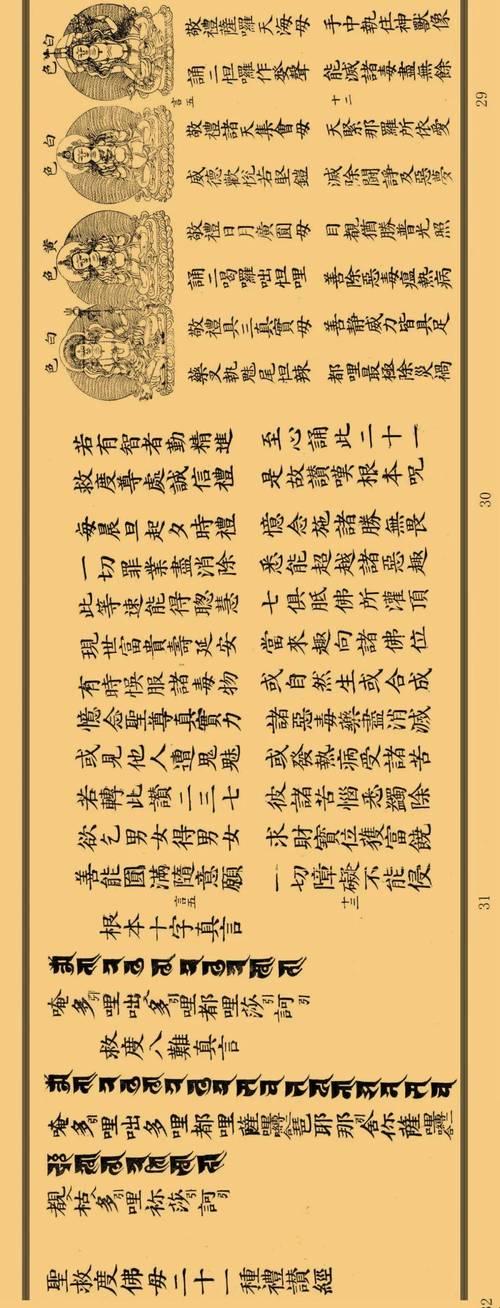 白色
敬禮薩囉天海母 手中執住神獸像
誦二怛囉作發聲 能滅諸毒盡無餘
言五 十二
29
白色
敬禮諸天集會母 天緊那羅所依愛
威德歡悅若堅鎧 滅除鬪諍及惡夢
黄色
敬禮日月廣圓母 目覩猶勝普光照
誦二喝囉咄怛哩 善除惡毒瘟熱病
白色
敬禮具三真實母 善靜威力皆具足
藥叉執魅尾怛辣 都哩最極除災禍
若有智者勤精進 至心誦此二十一
救度尊處誠信禮 是故讚嘆根本呪
30
每晨旦起夕時禮 憶念施諸勝無畏
一切罪業盡消除 悉能超越諸惡趣
此等速能得聰慧 七俱胝佛所灌頂
現世富貴壽延安 當來趣向諸佛位
有時悞服諸毒物 或自然生或合成
憶念聖尊真實力 諸惡毒藥盡消滅
或見他人遭鬼魅 或發熱病受諸苦
若轉此讚二三七 彼諸苦惱悉蠲除
欲乞男女得男女 求財寶位獲富饒
善能圓滿隨意願 一切障礙不能侵
言五 十三
31
根本十字真言
唵多引哩咄多引哩都哩莎引訶引
救度八難真言
唵多引哩咄多哩都哩薩琶耶那舍你薩
多引哩祢莎引訶引
聖救度佛母二十一種禮讚經